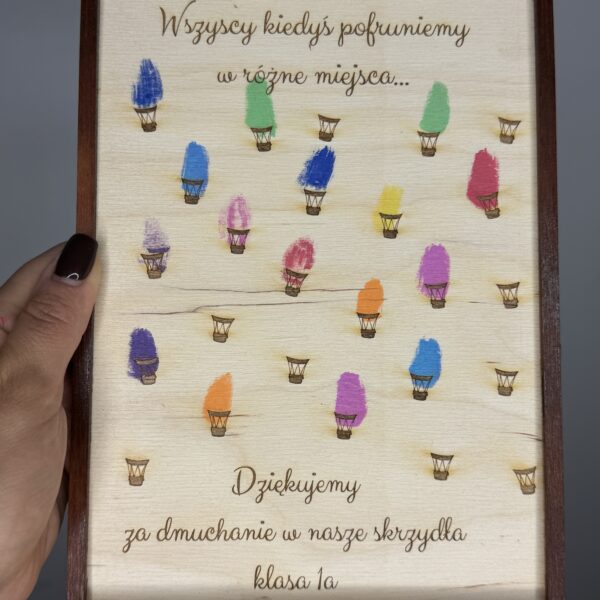 Wszyscy kiedyś pofruniemy
w różne miejsca...
Dziękujemy
za dmuchanie w nasze skrzydła
klasa 1a